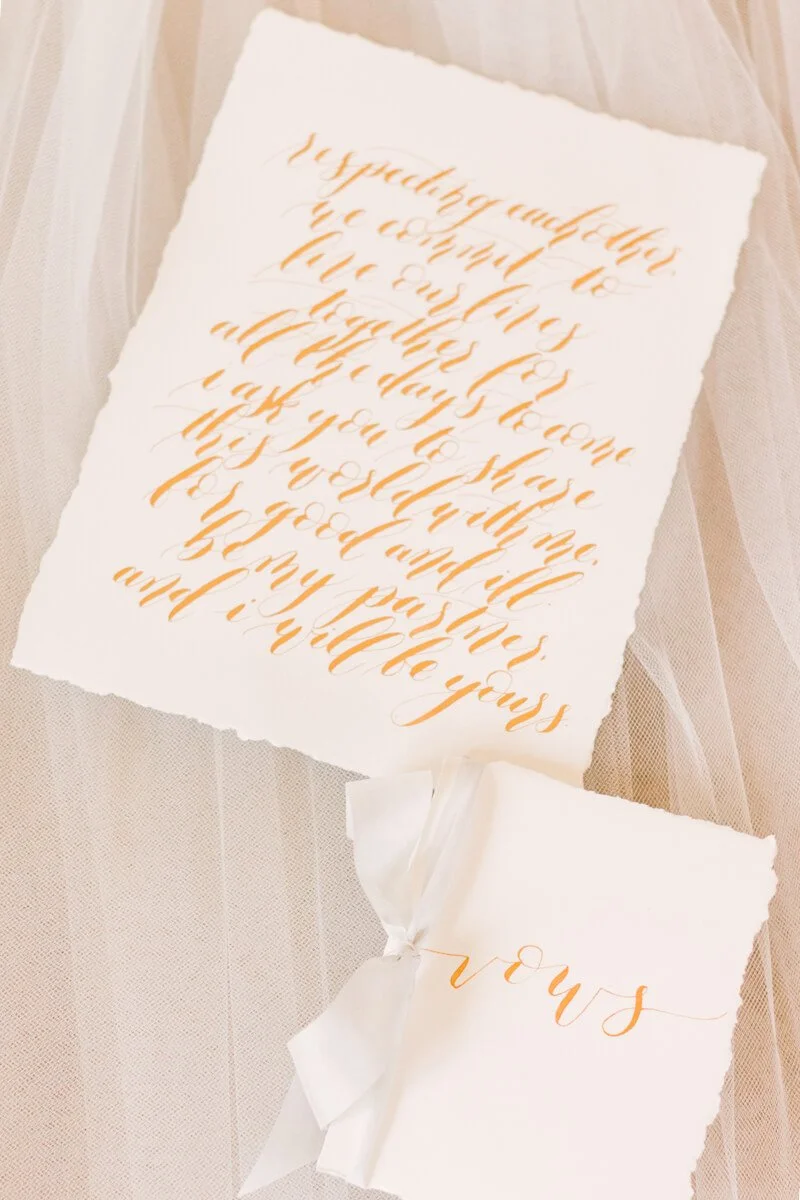 respecting each other,
we commit to
live our lives
together for
all the days to come
i ask you to share
this world with me,
for good and ill
be my partner,
and i will be yours.
vows